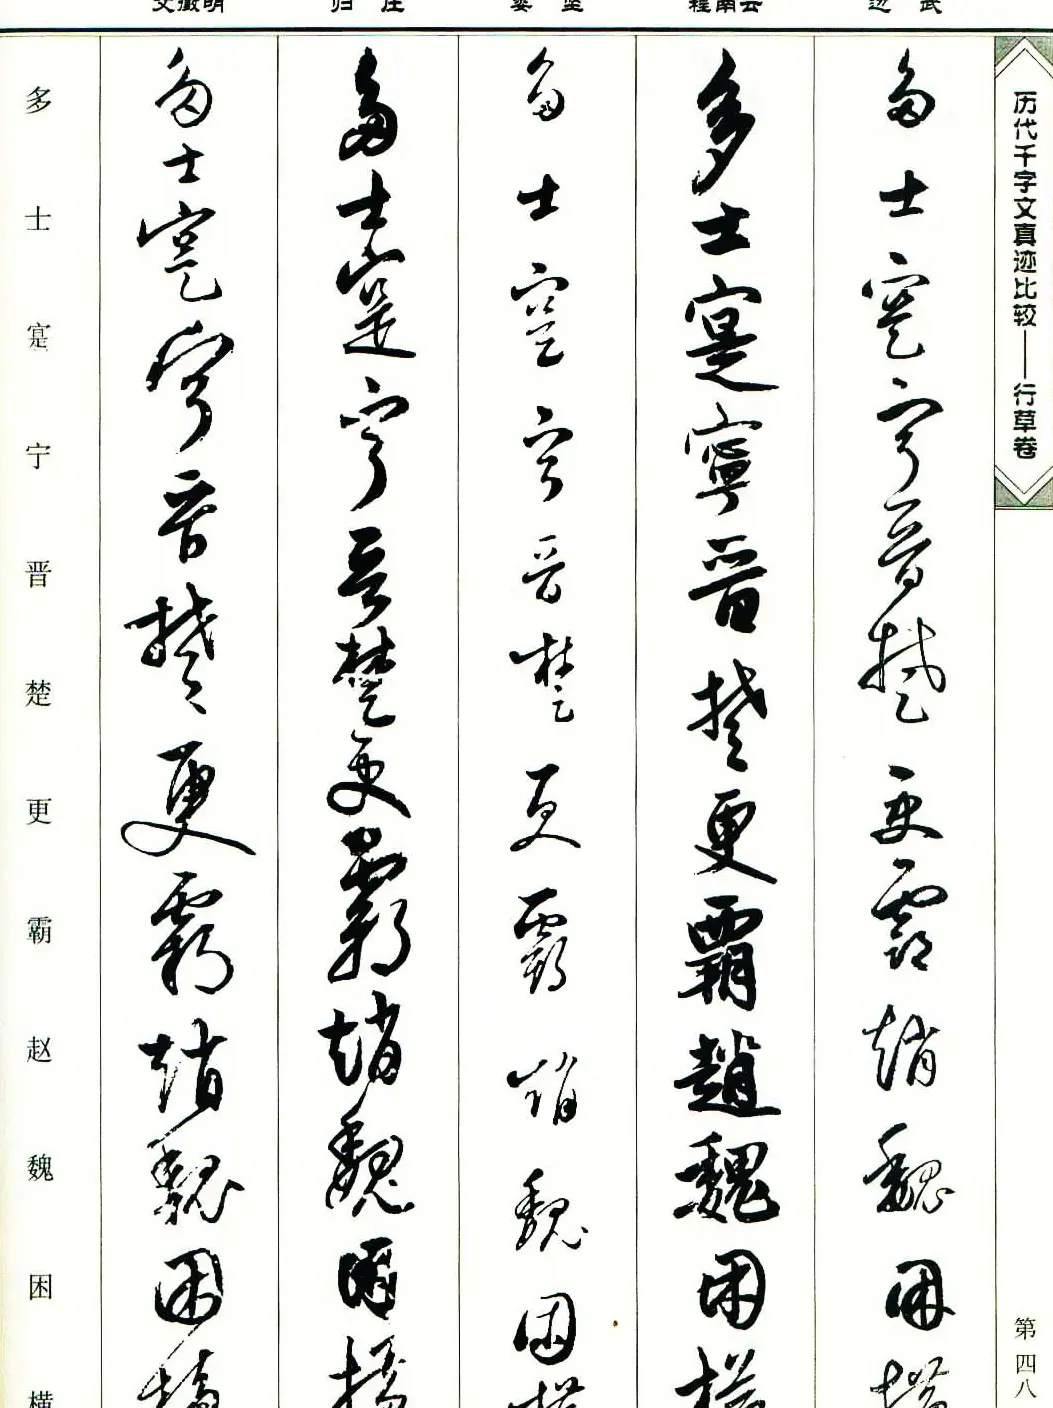 历代千字文真迹比较——行草卷
第四八
多士寔寧晉楚更霸趙魏困橫
多士寔寧晉楚更霸趙魏困橫
多士寔寧晉楚更霸趙魏困橫
多士寔寧晉楚更霸趙魏困橫
多士寔寧晉楚更霸趙魏困橫
多士寔宁晋楚更霸赵魏困横